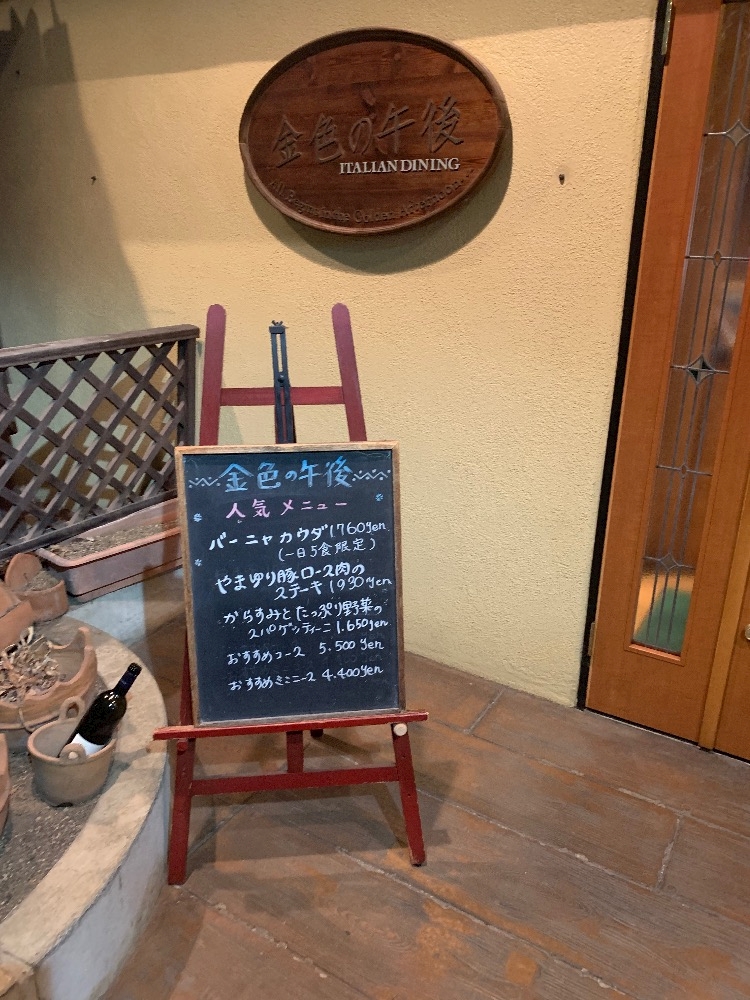 金色の午後
ITALIAN DINING
All in the Golden Afternoon
金色の午後
人気メニュー
バーニャカウダ 1760yen
(一日5食限定)
やまゆり豚ロース肉の
ステーキ 1930yen
からすみとたっぷり野菜の
スパゲッティーニ 1.650yen
おすすめコース 5.500yen
おすすめミニコース 4.400yen